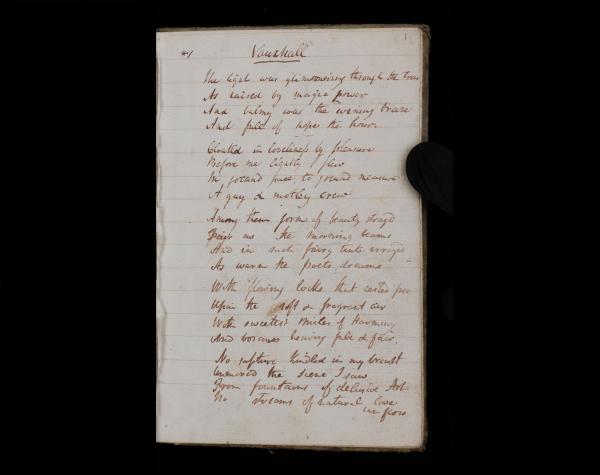 1
Vauxhall
The light was glimmering through the trees
As raised by magic power
And balmy was the evening breeze
And full of hope the hour
Cloathed in loveliness by pleasure
Before me lightly flew
In jocund pace to jocund measure
A gay & motley crew
Among them forms of beauty strayd
Fair as the morning beams
And in such fairy tints arrayd
As warm the poets dreams
With flowing locks that waved free
Upon the soft & fragrant air
With sweetest smiles of Harmony
And bosoms heaving full & fair.
No rapture kindled in my breast
Unmoved the scene I saw
From fountains of delusive Art
No streams of natural love
can flow